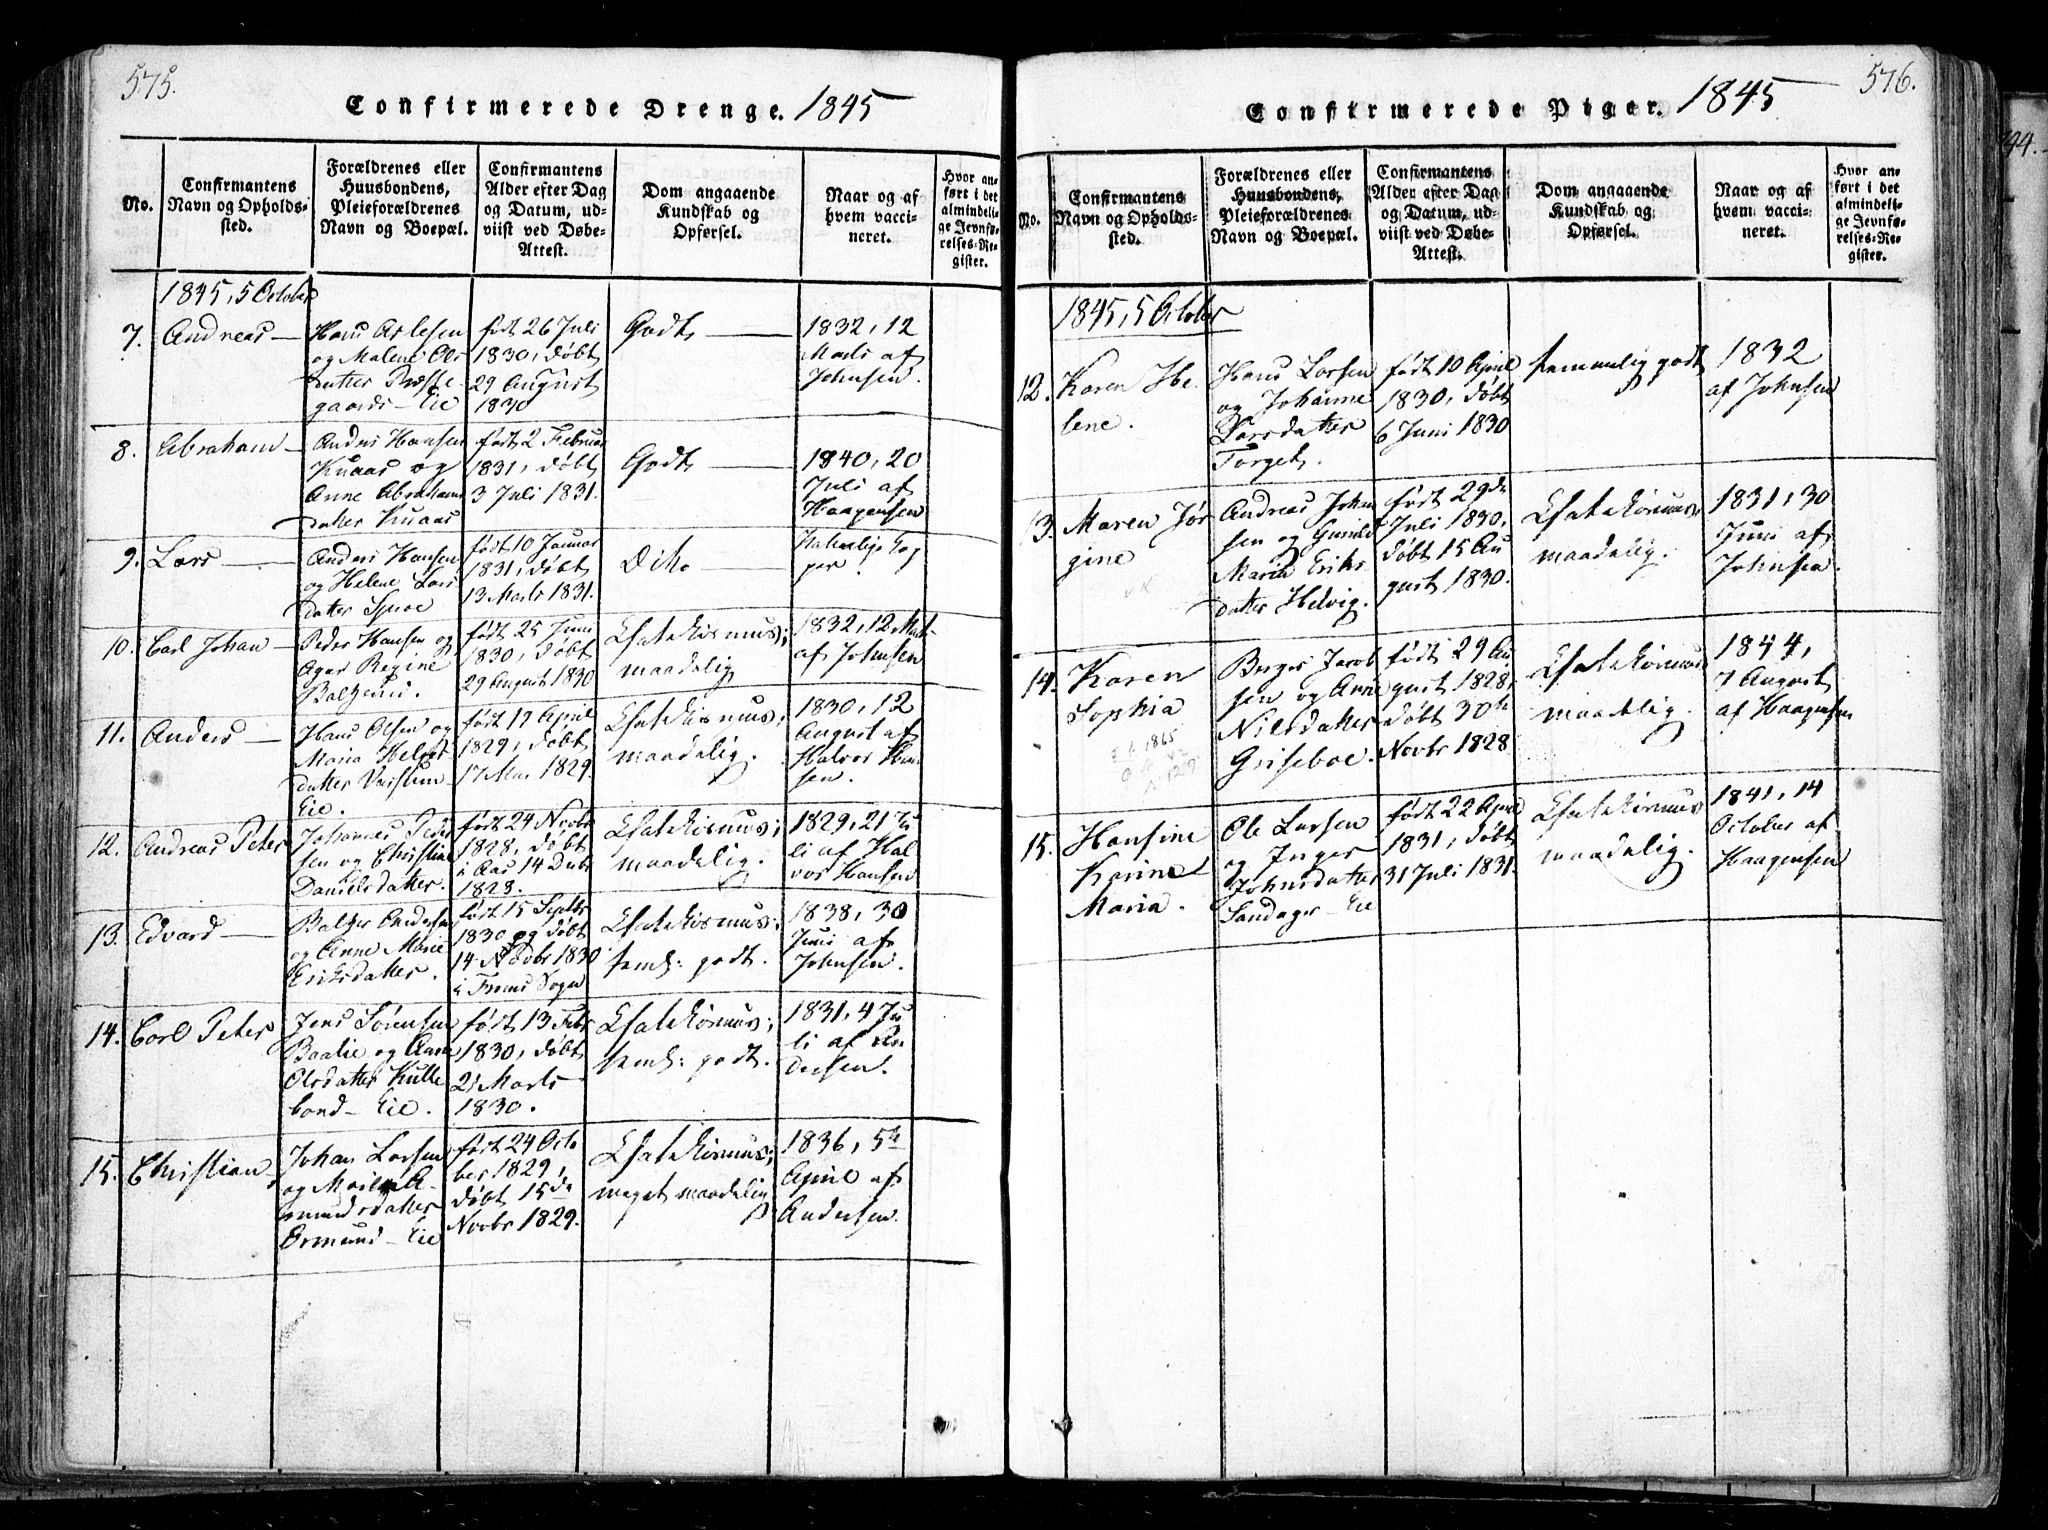 575.
Confirmerede Drenge. 1845
No.
Confirmantens
Navn og Opholds-
sted.
Forældrenes eller
Huusbondens,
Pleieforældrenes
Navn og Boepæl.
Confirmantens
Alder efter Dag
og Datum, ud-
viist ved Døbe-
Attest.
Dom angaaende
Kundskab og
Opførsel.
Naar og af
hvem vacci-
neret.
Hvor an-
ført i det
almindeli-
ge Jevnfø-
relses-Re-
gister.
1845, 5 October
7.
Andreas
Hans Aslesen
og Malene Ols
datter Præste
gaards-Eie
født 26 Juli
1830, døbt
29 August
1830
Godt
1832, 12
Marts af
Johnsen.
8.
Abraham
Anders Hansen
Knaas og
Anne Abrahams
datter Knaas
født 2 Februar
1831, døbt
3 Juli 1831.
Godt
1840, 20
Juli af
Haagensen
9.
Lars
Anders Hansen
og Helene Lars
datter
født 10 Januar
1831, døbt
13 Marts 1831.
Dito
Naturlige Kop
per.
10.
Carl Johan
Peder Hansen og
Regine
født 25 Juni
1830, døbt
29 August 1830
maadelig
1832, 12 Mar
af Johnsen
11.
Anders
Hans Olsen og
Maria
datter
Eie.
født 19 April
1829, døbt
17 Mai 1829.
maadelig.
1830, 12
August af
Halvor Han
sen.
12.
Andreas Peter
Johannes Peder
sen og Christia
Danielsdatter.
født 24 Novbr
1828, døbt
i Aas 14 Decbr
1828.
maadelig.
1829, 21 Ju
li af Hal
vor Hansen
13.
Edvard
Balzer Andersen
og Anne Marie
Eriksdatter.
født 15 Septbr
1830 og døbt
14 Novbr 1830
i Sogn
teml: godt.
1838, 30
Juni af
Johnsen.
14.
Carl Peter
Jens Sørensen
og Anne
Olsdatter Kulle
bond-Eie.
født 13 Febr
1830, døbt
21 Marts
1830.
teml: godt.
1831, 4 Ju
li af An
dersen.
15.
Christian
Johan Larsen
og A-
mundsdatter
Ormund-Eie
født 24 Octo
ber 1829,
døbt 15de
Novbr 1829.
meget maadelig
1836, 5te
April af
Andersen.
576.
Confirmerede Piger. 1845
No.
Confirmantens
Navn og Opholds-
sted.
Forældrenes eller
Huusbondens,
Pleieforældrenes
Navn og Boepæl.
Confirmantens
Alder efter Dag
og Datum, ud-
viist ved Døbe-
Attest.
Dom angaaende
Kundskab og
Opførsel.
Naar og af
hvem vacci-
neret.
Hvor an-
ført i det
almindeli-
ge Jevnfø-
relses-Re-
gister.
1845, 5 October
12.
Karen He
lene.
Hans Larsen
og Johanne
Larsdatter
Torget.
født 10 April
1830, døbt
6 Juni 1830
temmelig godt
1832
af Johnsen
13.
Maren Jør
gine
Andreas Johan
sen og Gunild
Maria Eriks
datter Helvig.
født 29de
Juli 1830,
døbt 15 Au
gust 1830.
maadelig.
1831, 30
Juni af
Johnsen.
14.
Karen
Sophia
Berger Jacob
sen og Anne
Nilsdatter
Griseboe.
født 29 Au
gust 1828,
døbt 30te
Novbr 1828
maadelig.
1844,
7 August
af Haagensen
15.
Hansine
Karine
Maria.
Ole Larsen
og Inger
Johnsdatter
Sandager-Eie
født 22 April
1831, døbt
31 Juli 1831.
maadelig.
1841, 14
October af
Haagensen